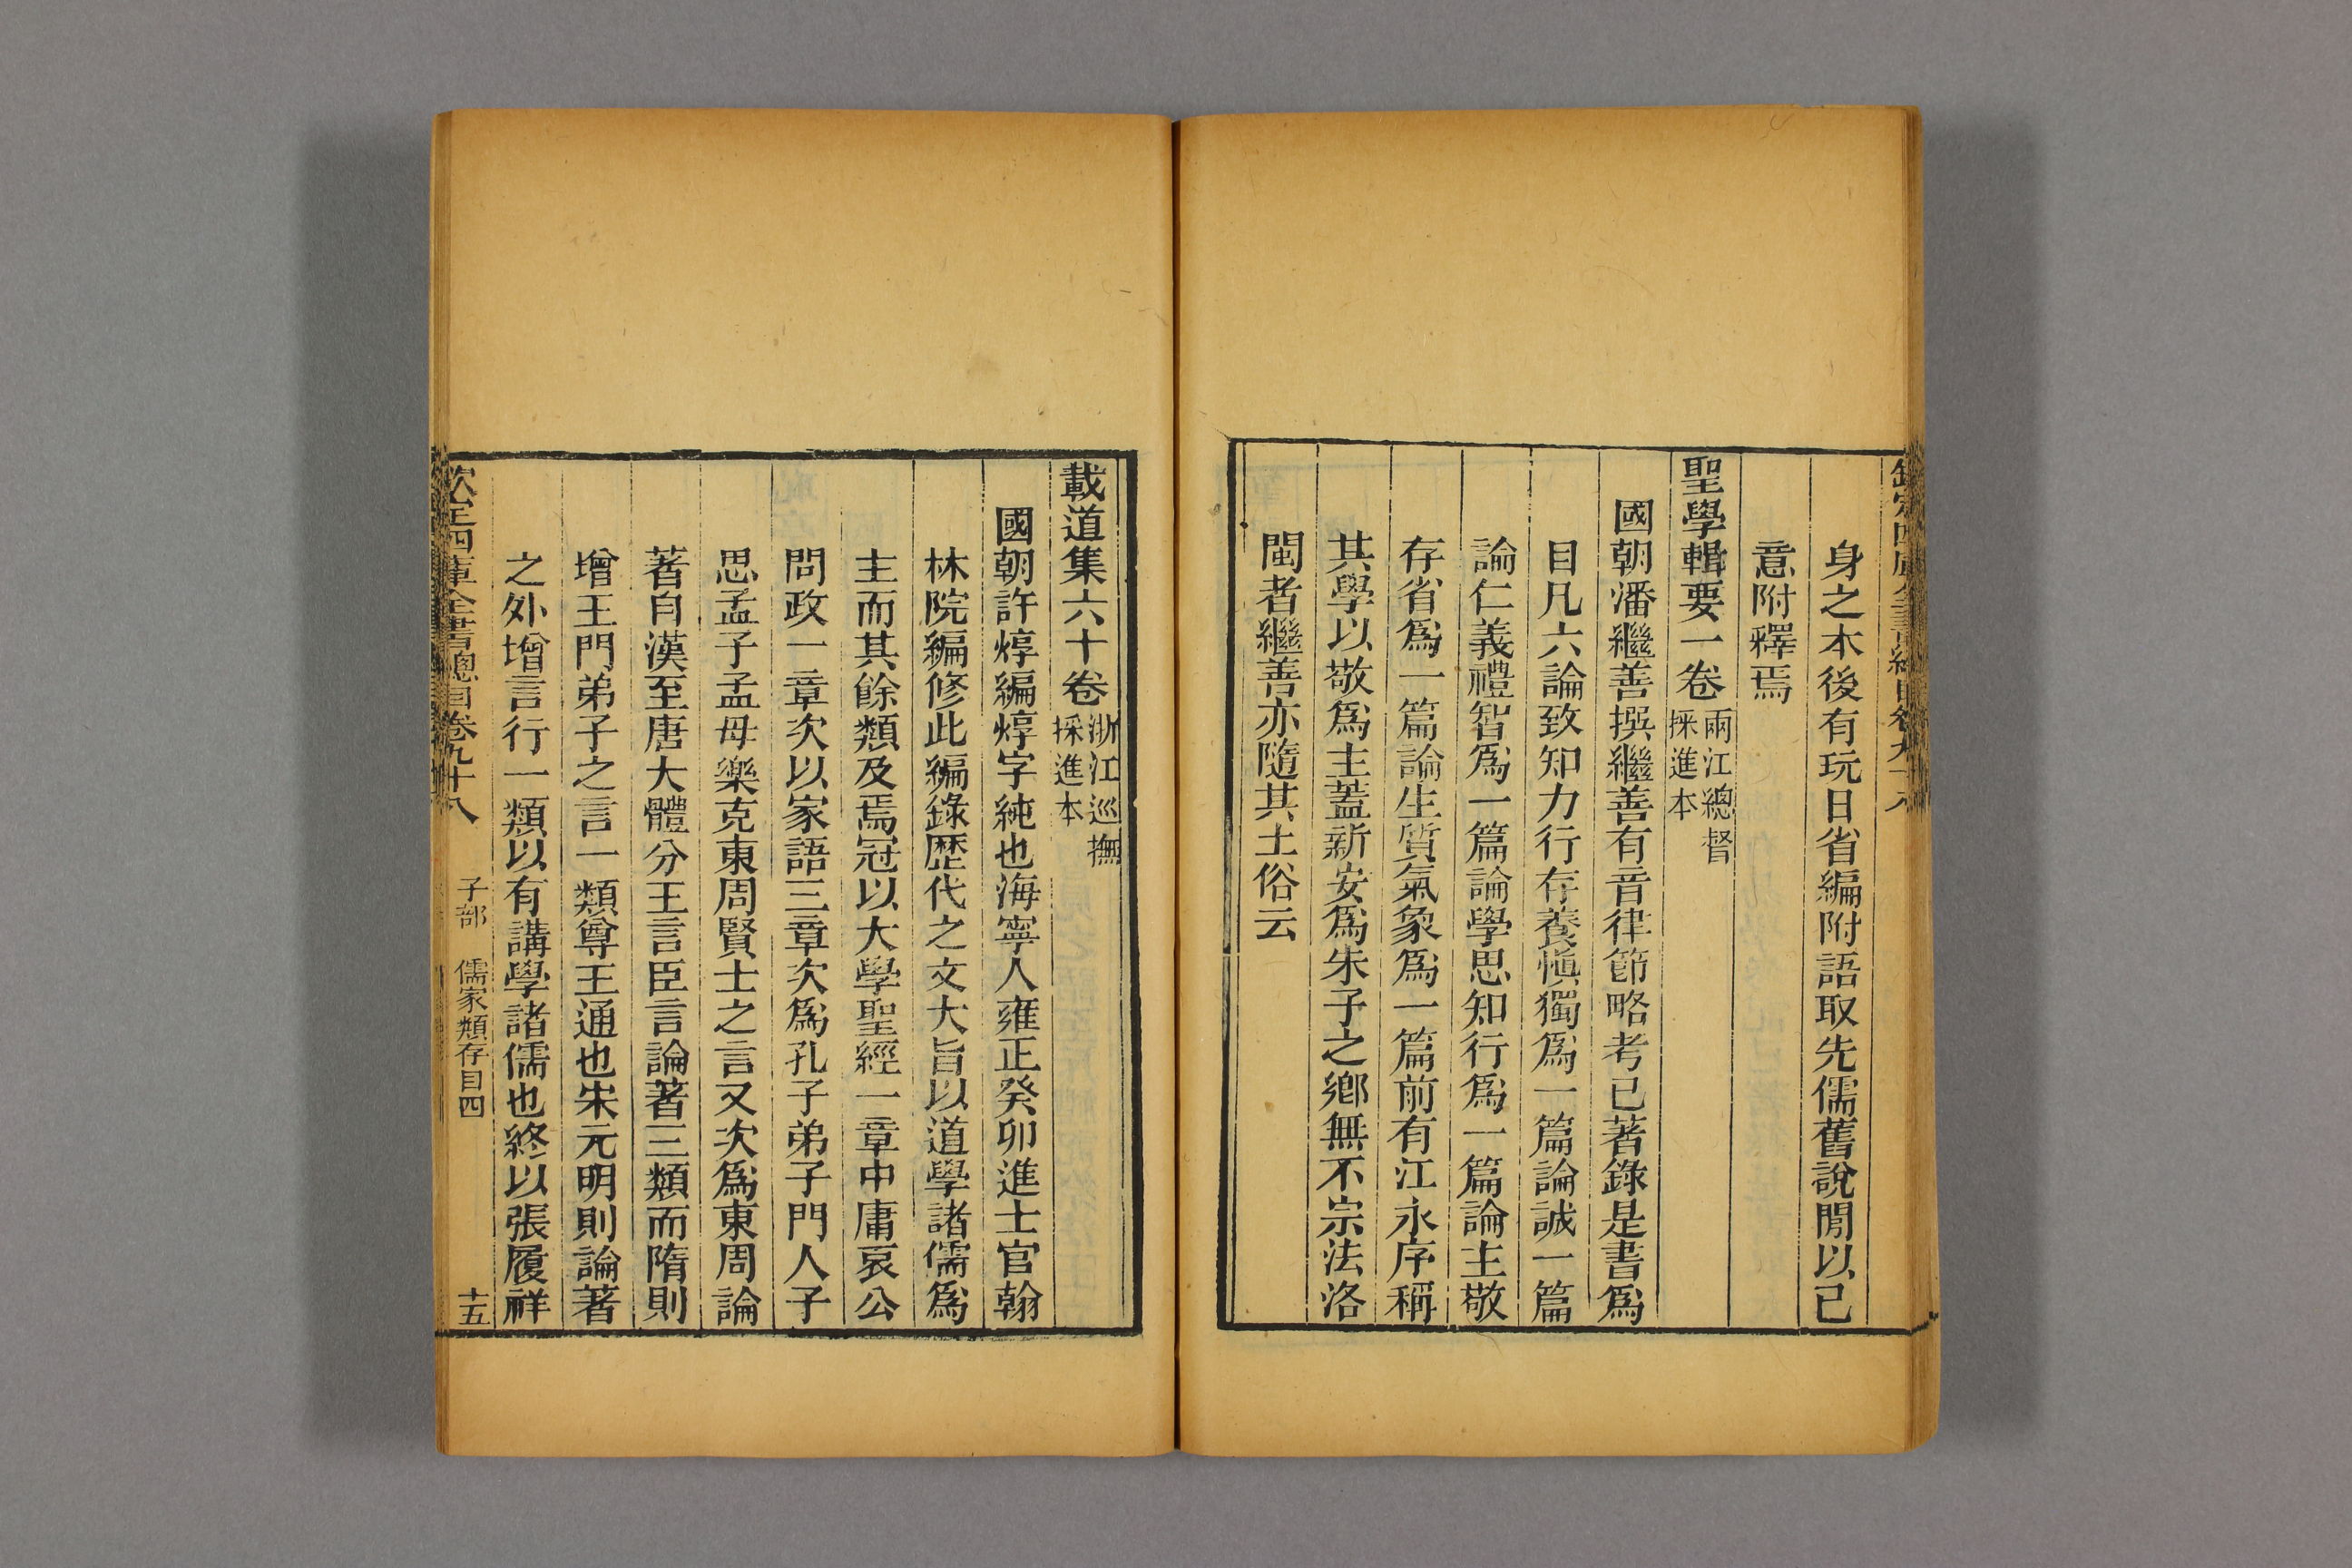 身之本後有玩日省編附語取先儒舊說閒以己
意附釋焉
聖學輯要一卷兩江總督採進本
國朝潘繼善撰繼善有音律節略考已著錄是書爲
目凡六論致知力行存養愼獨爲一篇論誠一篇
論仁義禮智爲一篇論學思知行爲一篇論主敬
存省爲一篇論生質氣象爲一篇前有江永序稱
其學以敬爲主蓋新安爲朱子之鄕無不宗法洛
閩者繼善亦隨其土俗云
載道集六十卷浙江巡撫採進本
國朝許焞編焞字純也海寧人雍正癸卯進士官翰
林院編修此編錄歷代之文大旨以道學諸儒爲
主而其餘類及焉冠以大學聖經一章中庸哀公
問政一章次以家語三章次爲孔子弟子門人子
思孟子孟母樂克東周賢士之言又次爲東周論
著自漢至唐大體分王言臣言論著三類而隋則
增王門弟子之言一類尊王通也宋元明則論著
之外增言行一類以有講學諸儒也終以張履祥
欽定四庫全書總目卷九十八 子部 儒家類存目四 十五